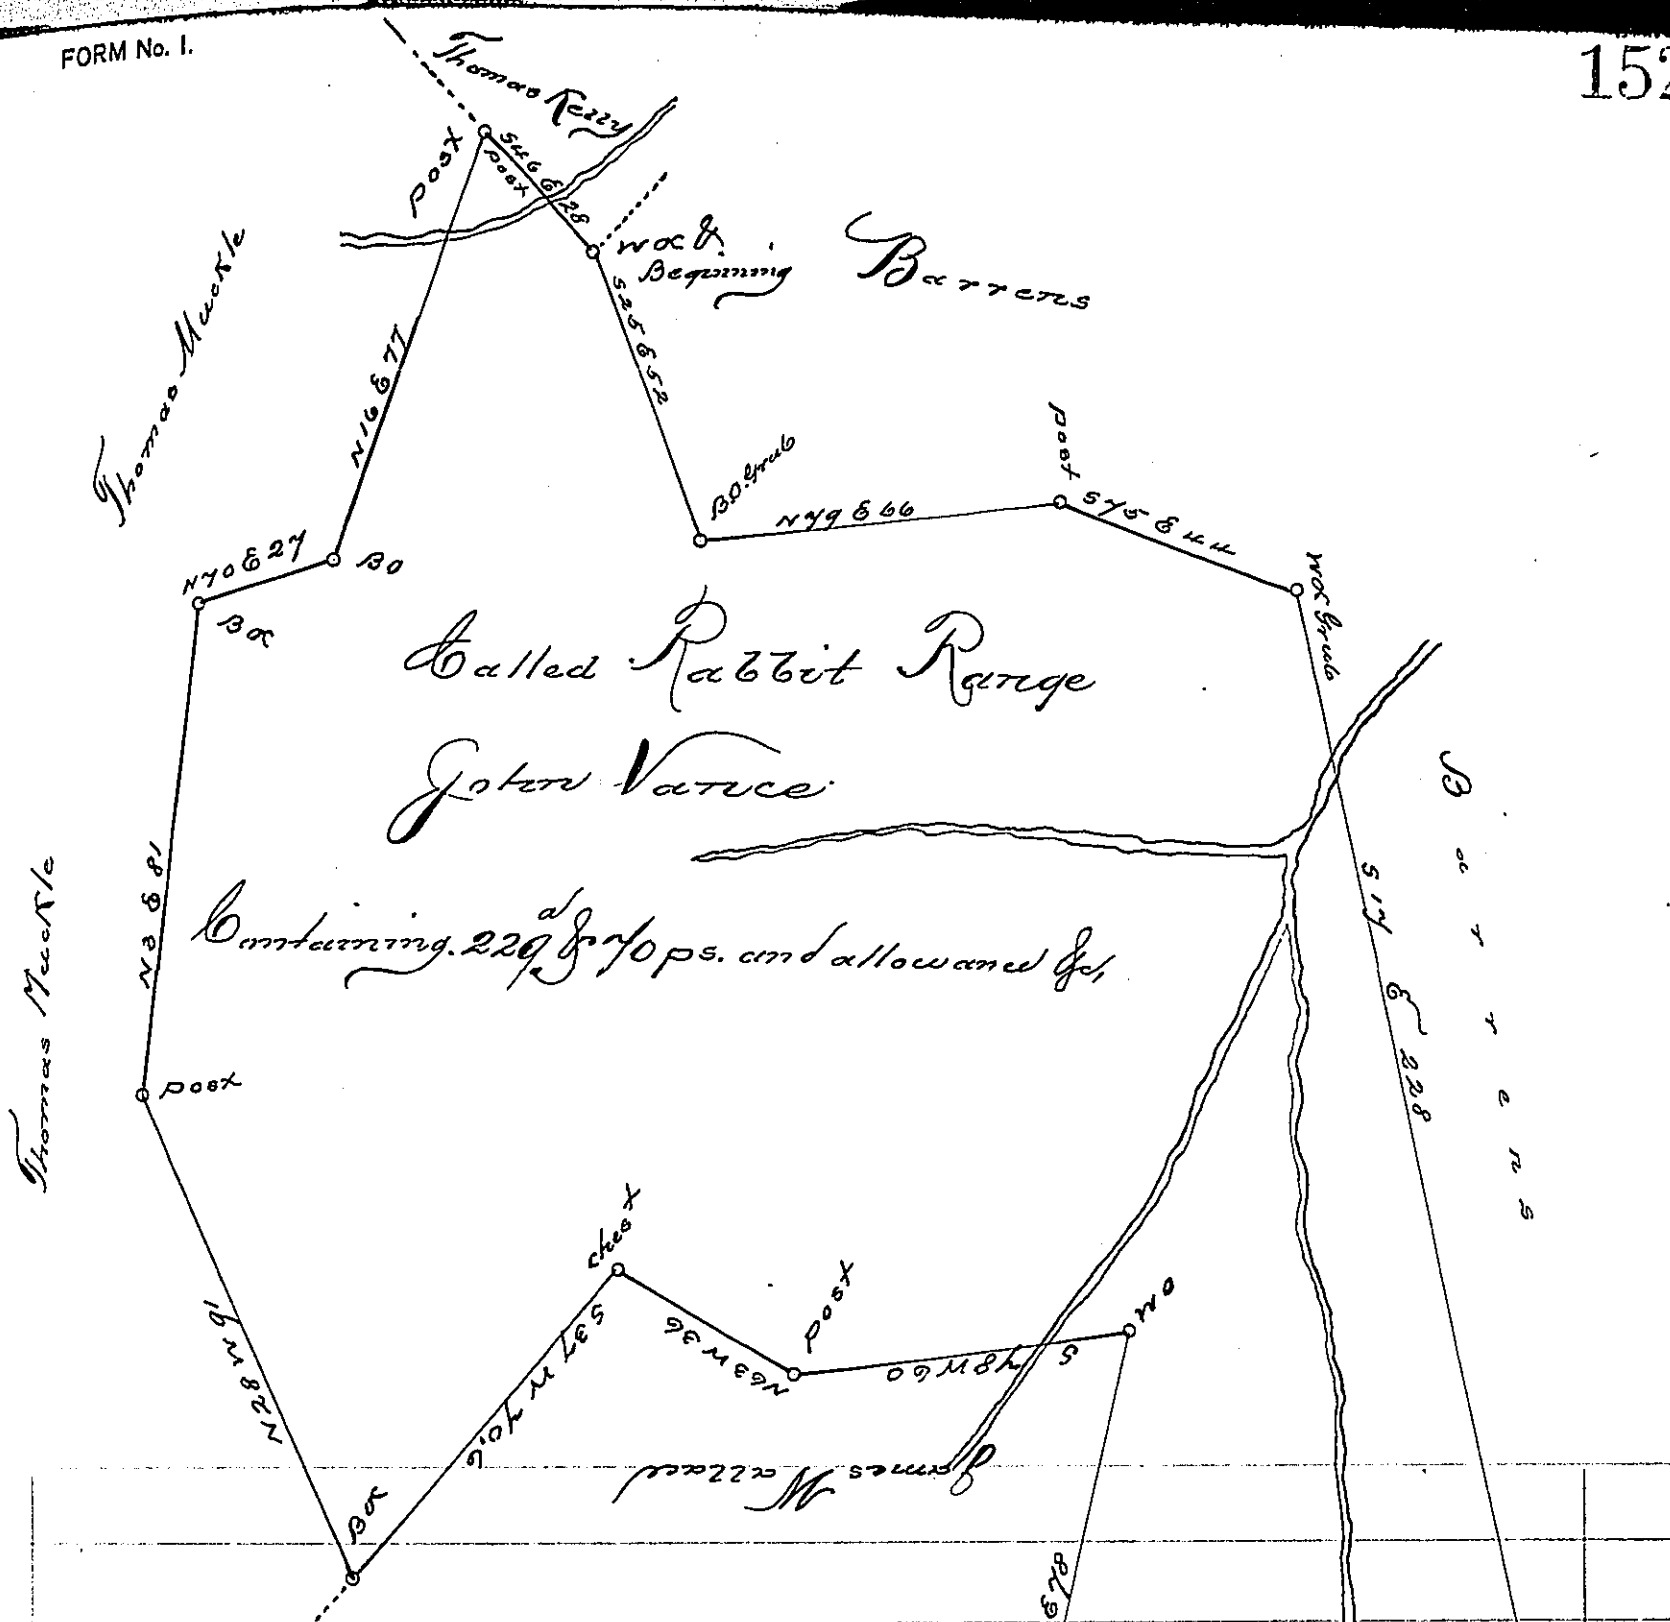 FORM No. 1.
152
Thomas Kelly
post
S46E28
post
wo &
Beginning
Barrens
Thomas Muckle
N16E77
S25E52
B.O. Grub
N79E66
post
S75E44
wo Grub
N70E27
BO
Bo
Called Rabbit Range
John Vance
Containing 229a & 70 ps. and allowance &c,
Barrens
S17E228
Thomas Muckle
N3E81
post
N28W91
chest
S37W70.6
N63W36
post
S78W60
wo
James Wallace
Bo